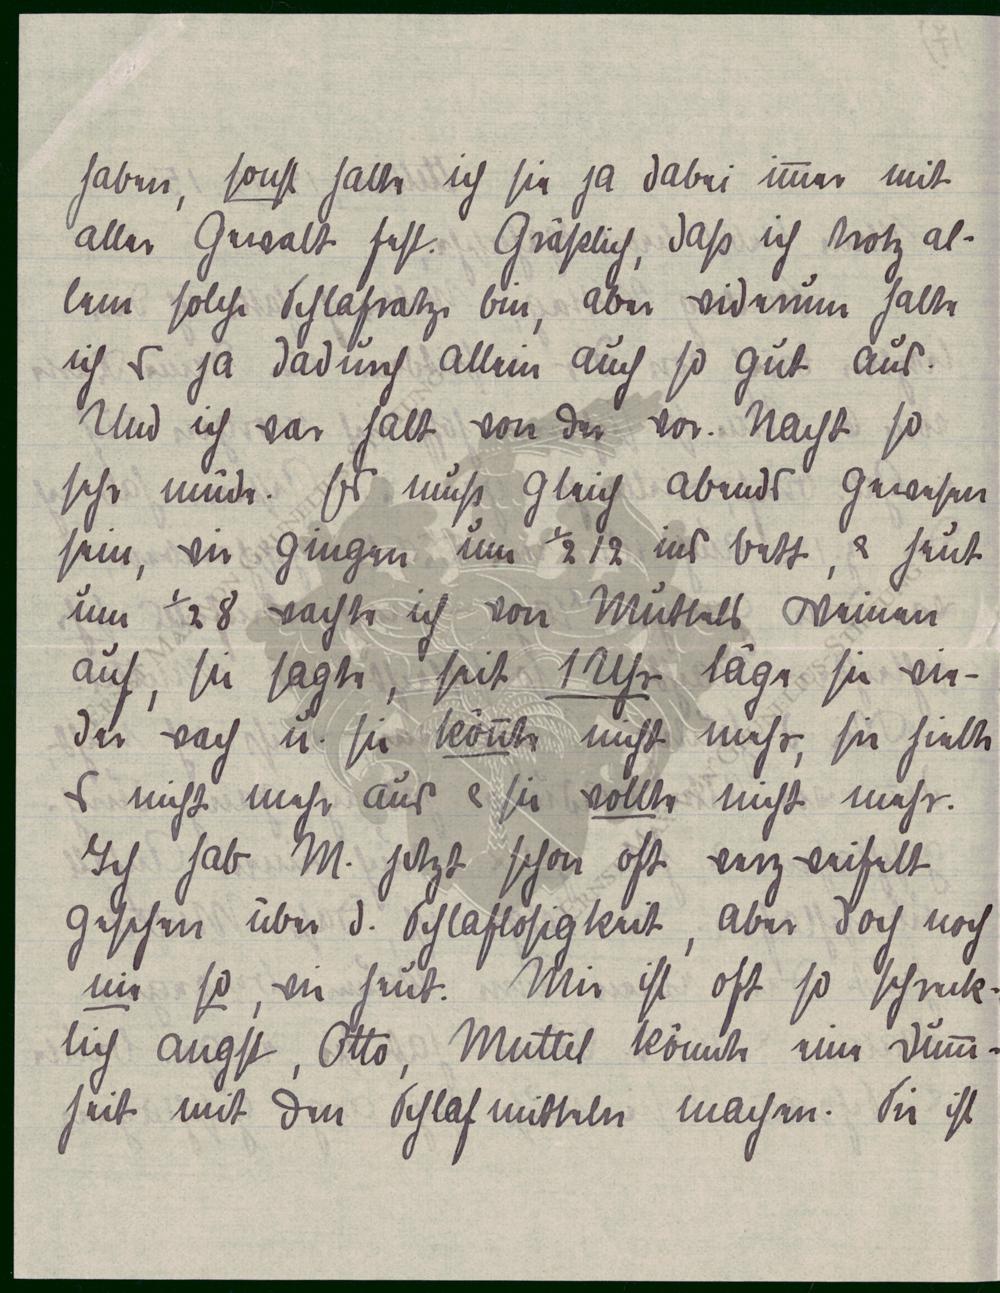 haben, sonst halte ich sie ja dabei im̅er mit
aller Gewalt fest. Gräßlich, daß ich trotz al-
lem solche Schlafratze bin, aber widerum halte
ich es ja dadurch allein auch so gut aus.
Und ich war halt von der vor. Nacht so
sehr müde. Es muß gleich abends gewesen
sein, wir gingen um ½ 12 ins bett, & heut
um ½ 8 wachte ich von Muttels Weinen
auf, sie sagte, seit 1 Uhr läge sie wie-
der wach u. sie kön̅te nicht mehr, sie hielte
es nicht mehr aus & sie wollte nicht mehr.
Ich hab M. jetzt schon oft verzweifelt
gesehen über d. Schlaflosigkeit, aber doch noch
nie so, wie heut. Mir ist oft so schreck-
lich angst, Otto, Muttel könnte eine Dum̅-
heit mit den Schlafmitteln machen. Sie ist